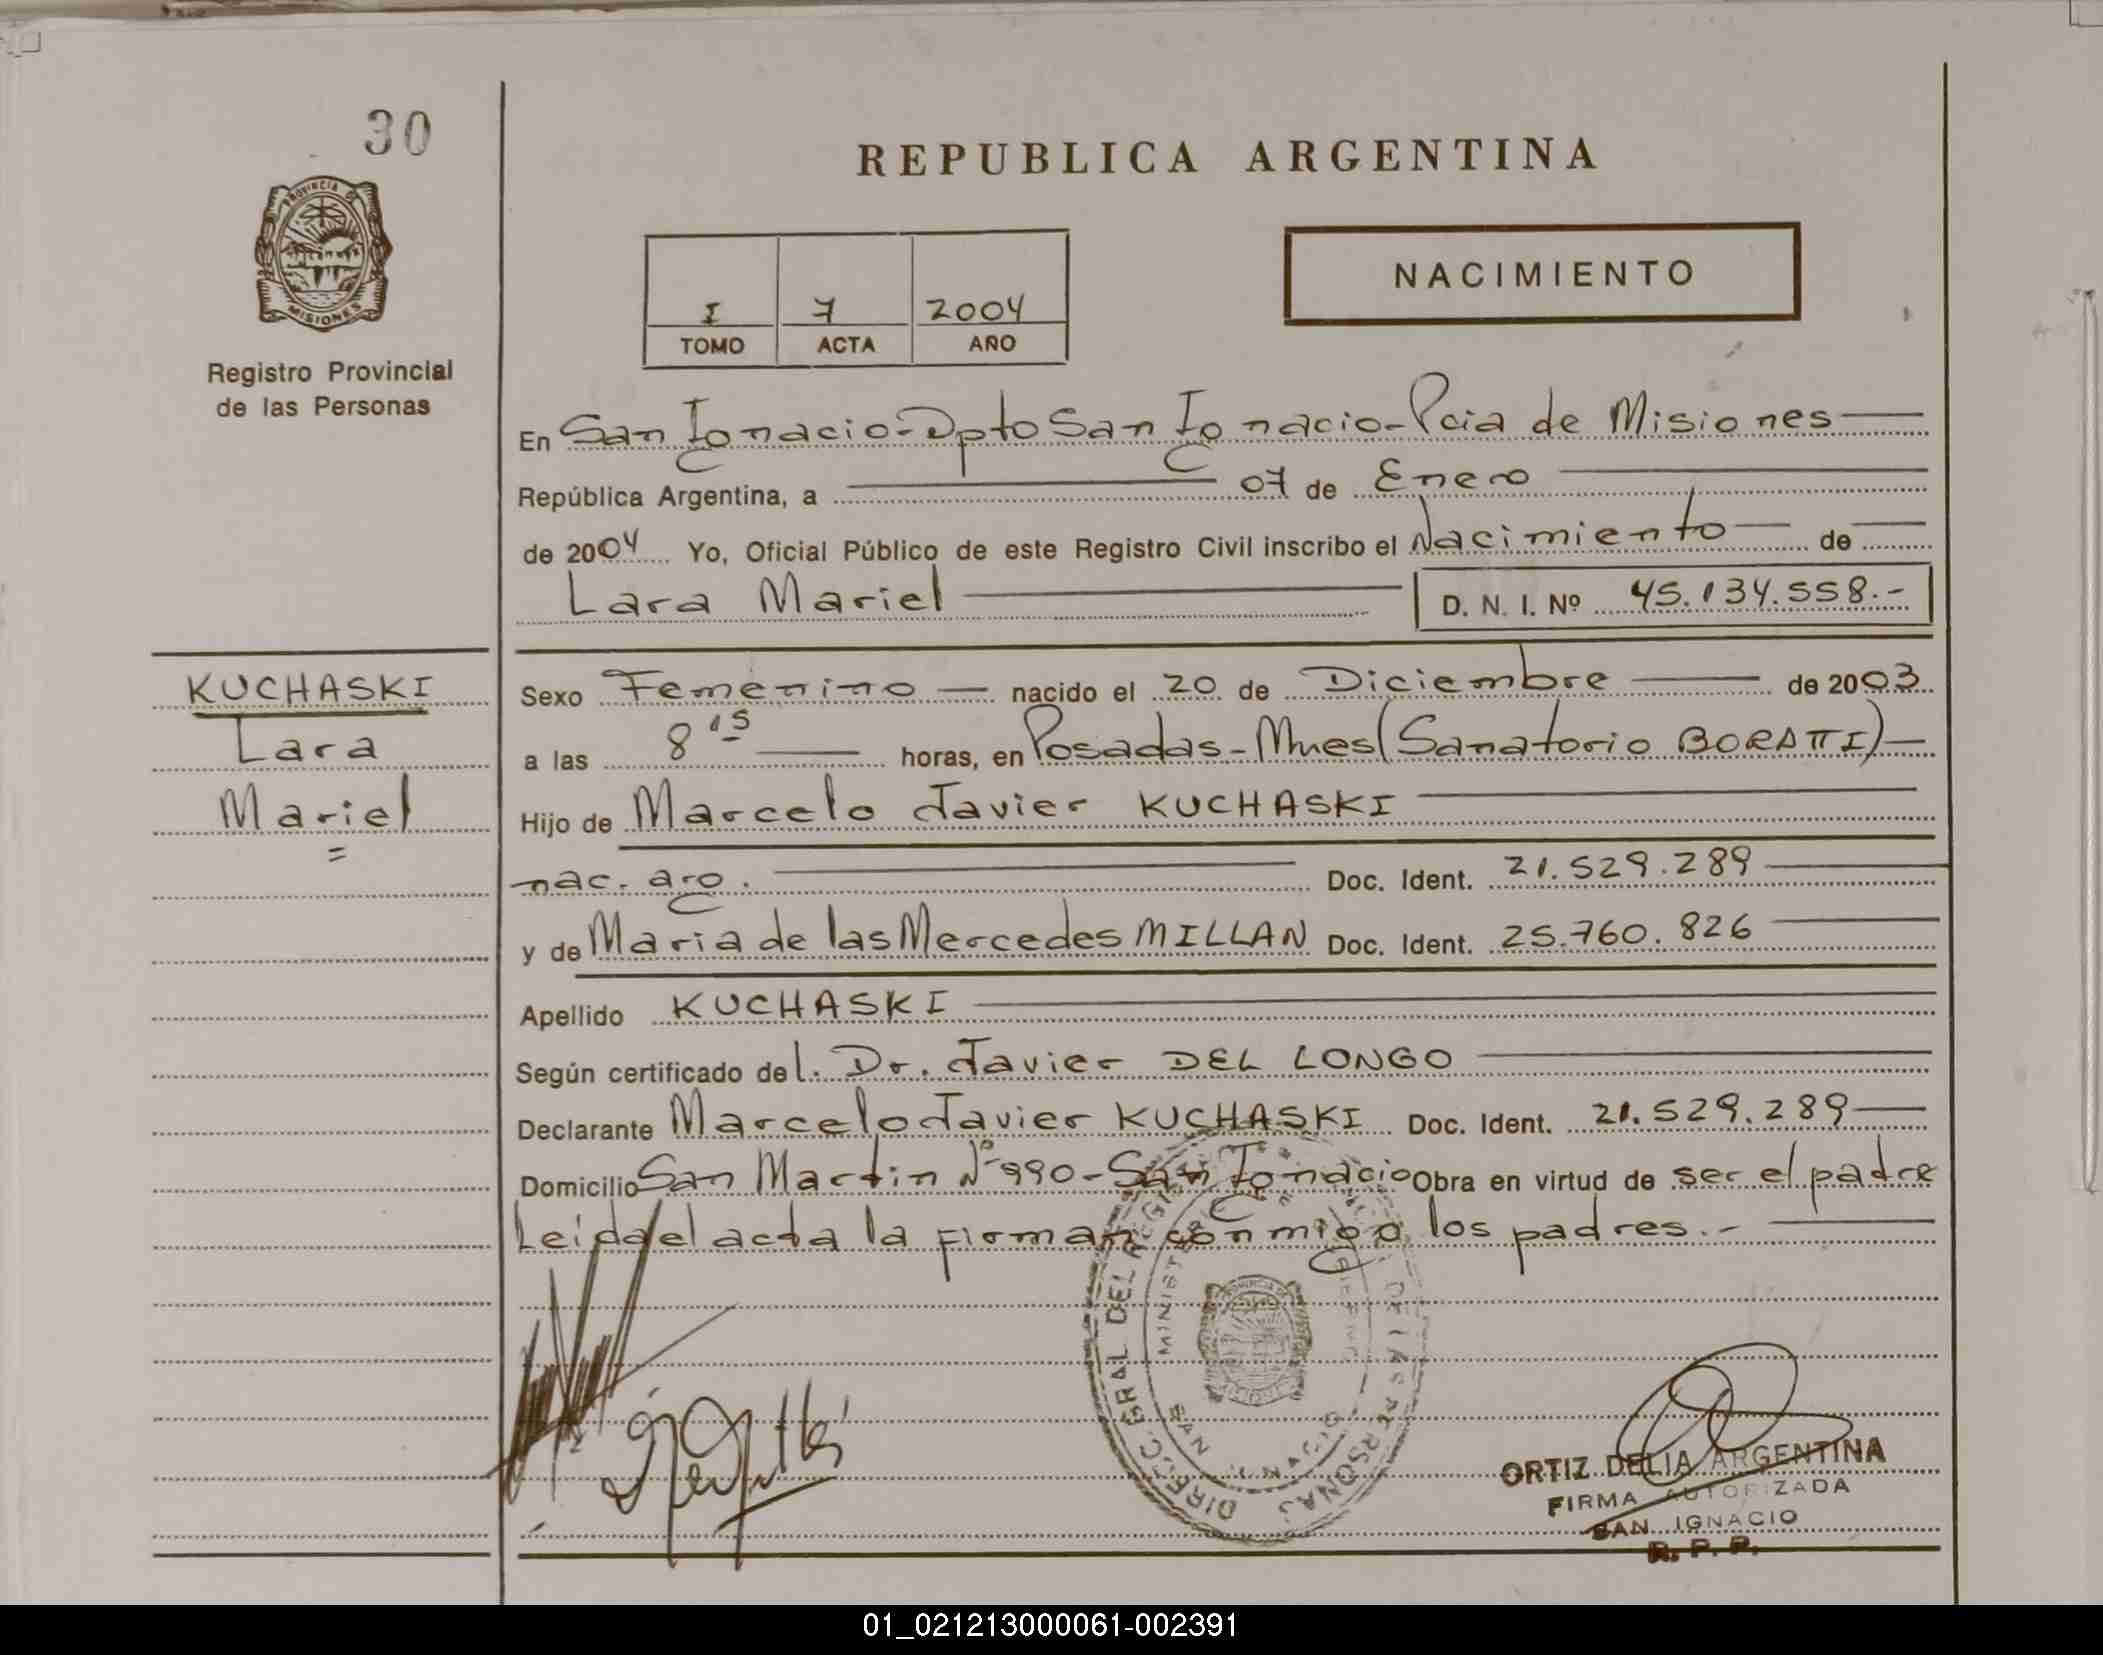 30
REPUBLICA ARGENTINA
PROVINCIA DE
MISIONES
Registro Provincial
de las Personas
I 7 2004
TOMO ACTA AÑO
NACIMIENTO
En San Ignacio-Dpto San Ignacio-Pcia de Misiones
República Argentina, a 07 de Enero
de 2004 Yo, Oficial Público de este Registro Civil inscribo el Nacimiento de
Lara Mariel D. N. I. Nº 45.134.558.-
KUCHASKI
Lara
Mariel
Sexo Femenino nacido el 20 de Diciembre de 2003
a las 8 15 horas, en Posadas-Mnes (Sanatorio BORATTI)
Hijo de Marcelo Javier KUCHASKI
nac. arg. Doc. Ident. 21.529.289
y de Maria de las Mercedes MILLAN Doc. Ident. 25.760.826
Apellido KUCHASKI
Según certificado del. Dr. Javier DEL LONGO
Declarante Marcelo Javier KUCHASKI Doc. Ident. 21.529.289
Domicilio San Martin Nº 990-San Ignacio Obra en virtud de ser el padre
Leida el acta la firman conmigo los padres.-
DIREC. GRAL DEL REGISTRO DE LAS PERSONAS
ORTIZ DELIA ARGENTINA
FIRMA AUTORIZADA
SAN IGNACIO
R. P. P.
01_021213000061-002391